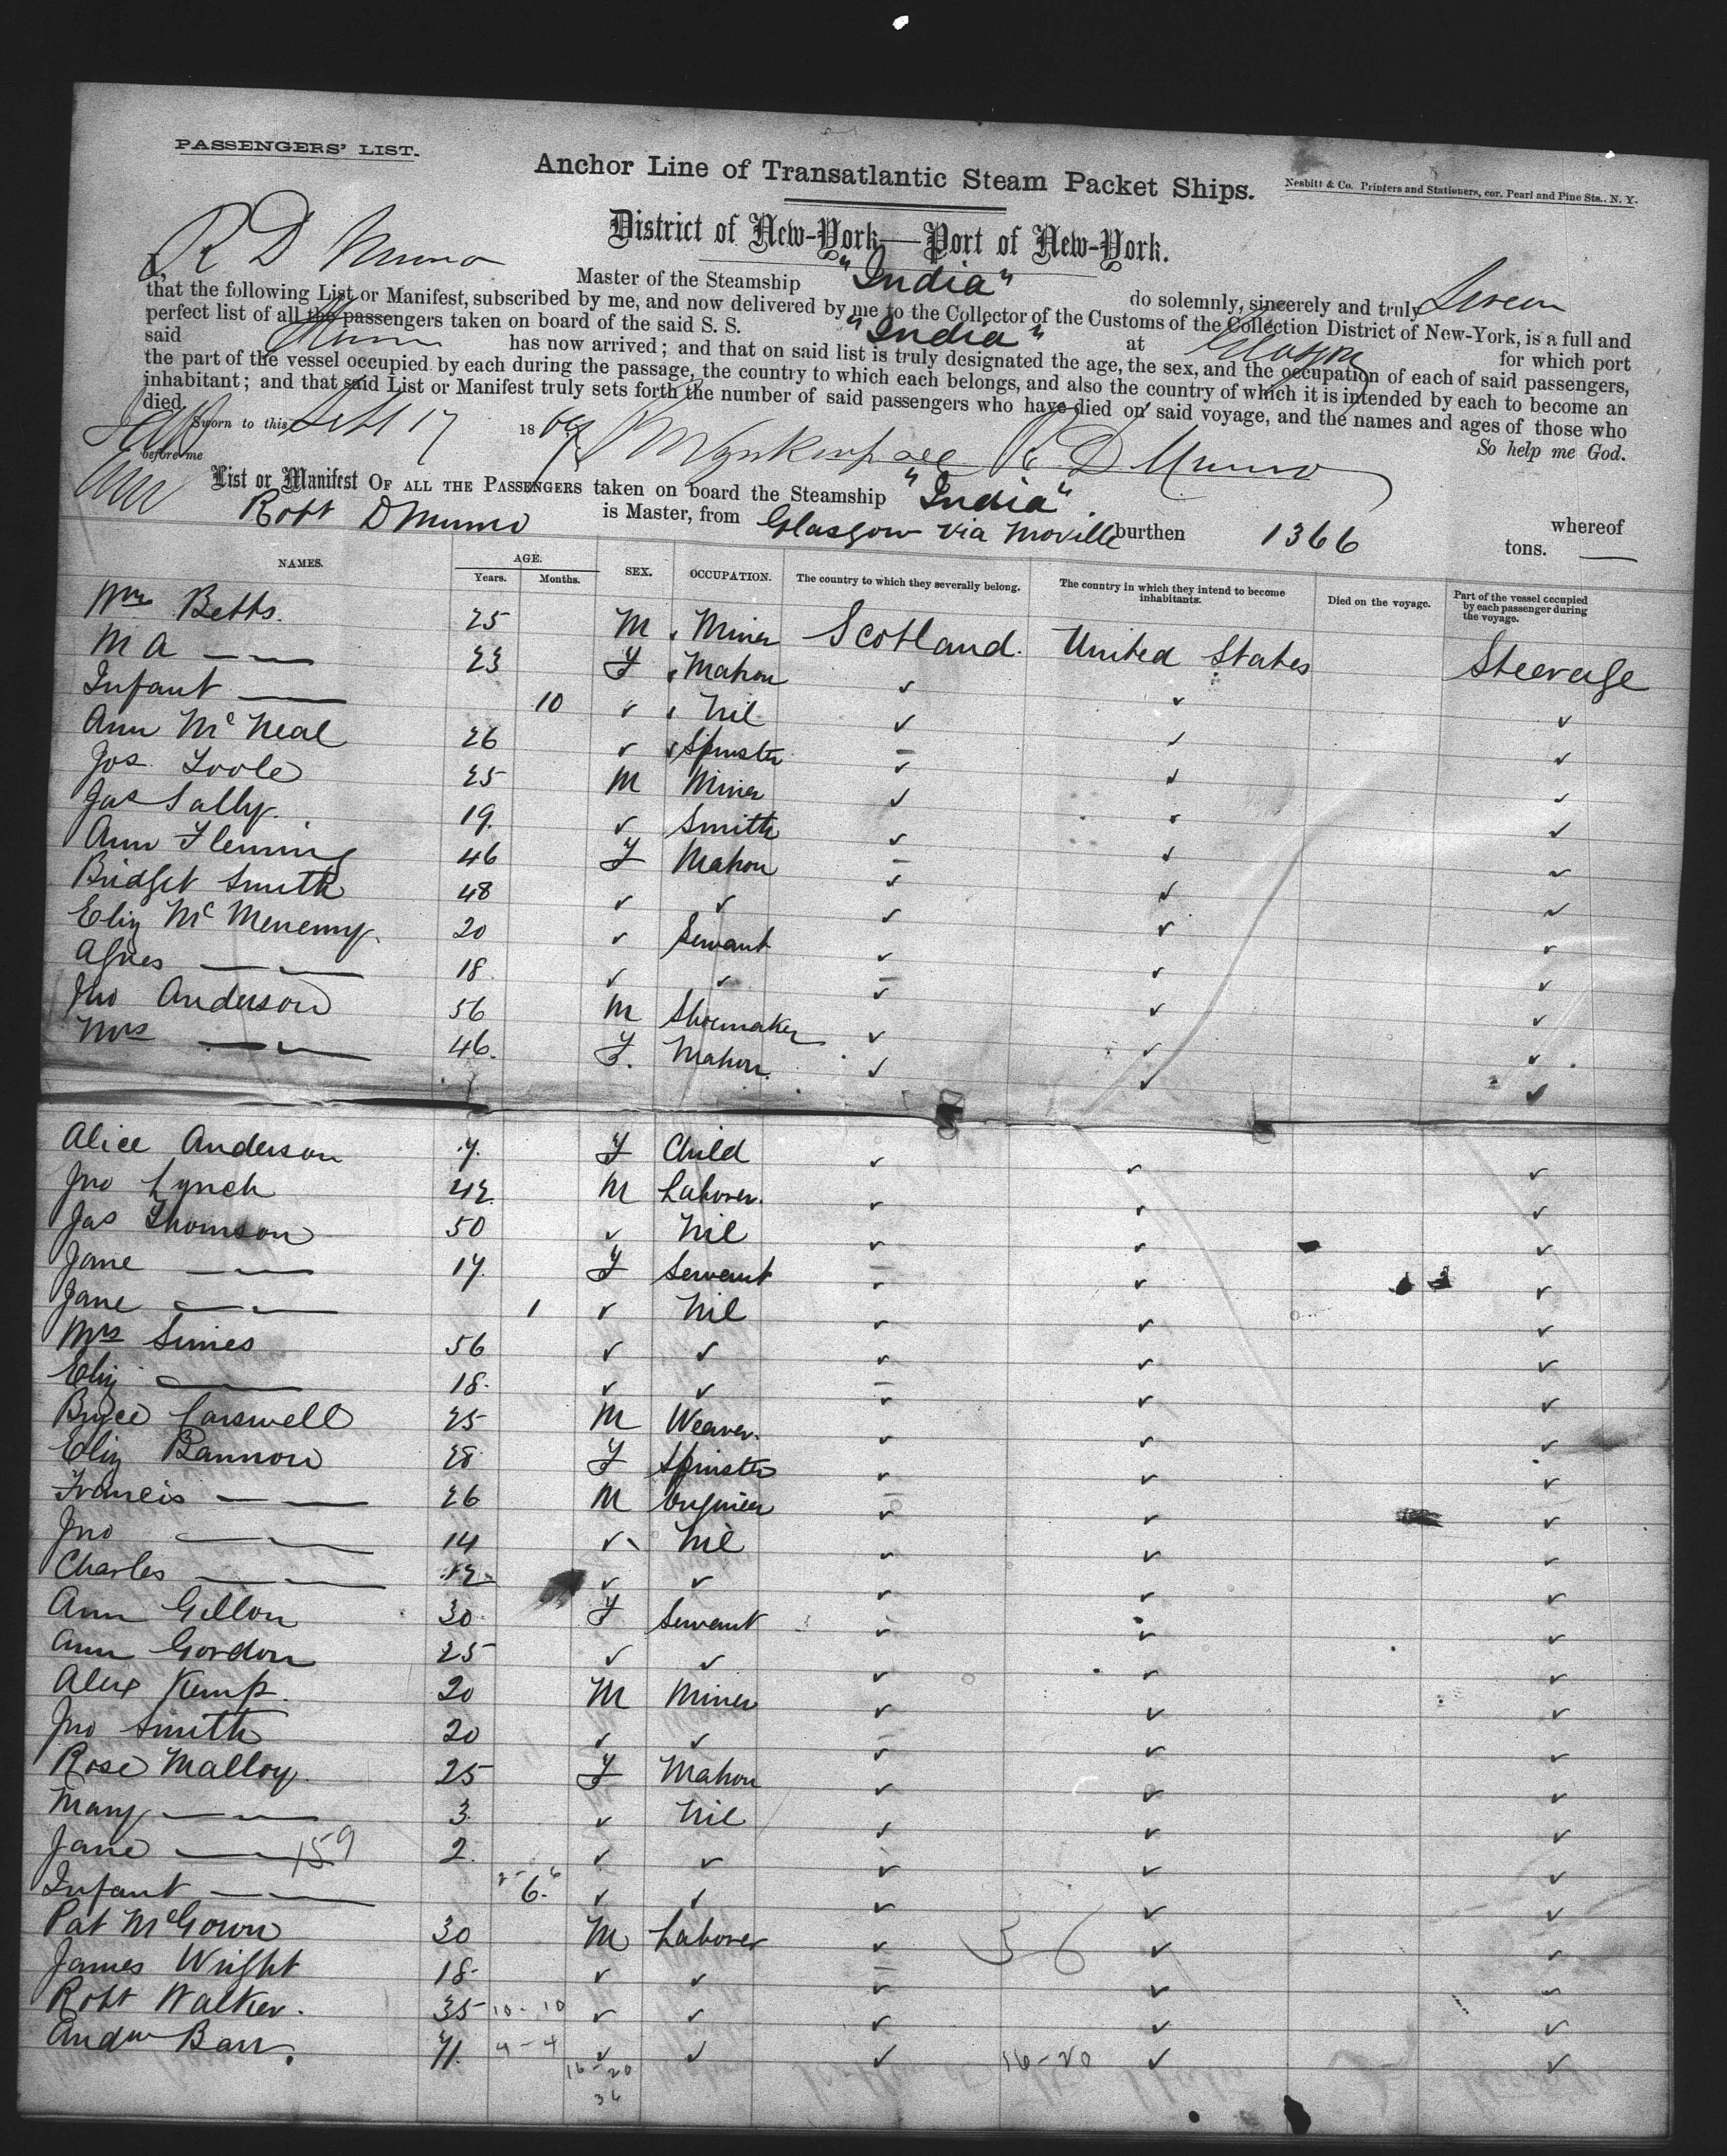 PASSENGERS' LIST.
Anchor Line of Transatlantic Steam Packet Ships.
Nesbitt & Co. Printers and Stationers, cor. Pearl and Pine Sts., N. Y.
District of New-York—Port of New-York.
I, R D Munro Master of the Steamship "India" do solemnly, sincerely and truly Swear
that the following List or Manifest, subscribed by me, and now delivered by me to the Collector of the Customs of the Collection District of New-York, is a full and
perfect list of all the passengers taken on board of the said S. S. "India" at Glasgow for which port
said has now arrived; and that on said list is truly designated the age, the sex, and the occupation of each of said passengers,
the part of the vessel occupied by each during the passage, the country to which each belongs, and also the country of which it is intended by each to become an
inhabitant; and that said List or Manifest truly sets forth the number of said passengers who have died on said voyage, and the names and ages of those who
died.
So help me God.
Sworn to this Sept 17 1869 R D Munro
before me
List or Manifest OF ALL THE PASSENGERS taken on board the Steamship "India" whereof
Robt D Munro is Master, from Glasgow via Moville burthen 1366 tons. —
NAMES. AGE. SEX. OCCUPATION. The country to which they severally belong. The country in which they intend to become inhabitants. Died on the voyage. Part of the vessel occupied by each passenger during the voyage.
Years. Months.
Wm Betts. 25 M Miner Scotland. United States Steerage
M A — — 23 F Matron ✓ ✓ ✓
Infant — 10 ✓ Nil ✓ ✓ ✓
Ann McNeal 26 ✓ Spinster ✓ ✓ ✓
Jos Toole 25 M Miner ✓ ✓ ✓
Jas Lally. 19. ✓ Smith ✓ ✓ ✓
Ann Fleming 46 F Matron ✓ ✓ ✓
Bridget Smith 48 ✓ ✓ ✓ ✓ ✓
Eliz McMenemy. 20 ✓ Servant ✓ ✓ ✓
Agnes — — 18. ✓ ✓ ✓ ✓ ✓
Jno Anderson 56 M Shoemaker ✓ ✓ ✓
Mrs — — 46. F. Matron. ✓ ✓ ✓
Alice Anderson 7. F Child ✓ ✓ ✓
Jno Lynch 42. M Laborer. ✓ ✓ ✓
Jas Thomson 50 ✓ Nil ✓ ✓ ✓
Jane — — 17. F Servant ✓ ✓ ✓
Jane — — 1 ✓ Nil ✓ ✓ ✓
Mrs Simes 56 ✓ ✓ ✓ ✓ ✓
Eliz — 18. ✓ ✓ ✓ ✓ ✓
Bryce Carswell 25 M Weaver. ✓ ✓ ✓
Eliz Bannon 28. F Spinster ✓ ✓ ✓
Francis — — 26 M Engineer ✓ ✓ ✓
Jno — — 14 ✓ Nil ✓ ✓ ✓
Charles — — 12 ✓ ✓ ✓ ✓ ✓
Ann Gillon 30. F Servant ✓ ✓ ✓
Ann Gordon 25 ✓ ✓ ✓ ✓ ✓
Alex Kemp. 20 M Miner ✓ ✓ ✓
Jno Smith 20 ✓ ✓ ✓ ✓ ✓
Rose Malloy. 25 F Matron ✓ ✓ ✓
Mary — — 3. ✓ Nil ✓ ✓ ✓
Jane — — 159 2. ✓ ✓ ✓ ✓ ✓
Infant — — 6. ✓ ✓ ✓ ✓ ✓
Pat McGown 30 M Laborer ✓ 56 ✓ ✓
James Wright 18. ✓ ✓ ✓ ✓ ✓
Robt Walker. 35 10-10 ✓ ✓ ✓ ✓ ✓
Andw Barr. 71. 4-4 ✓ ✓ ✓ 16-20 ✓ ✓
16-20
36